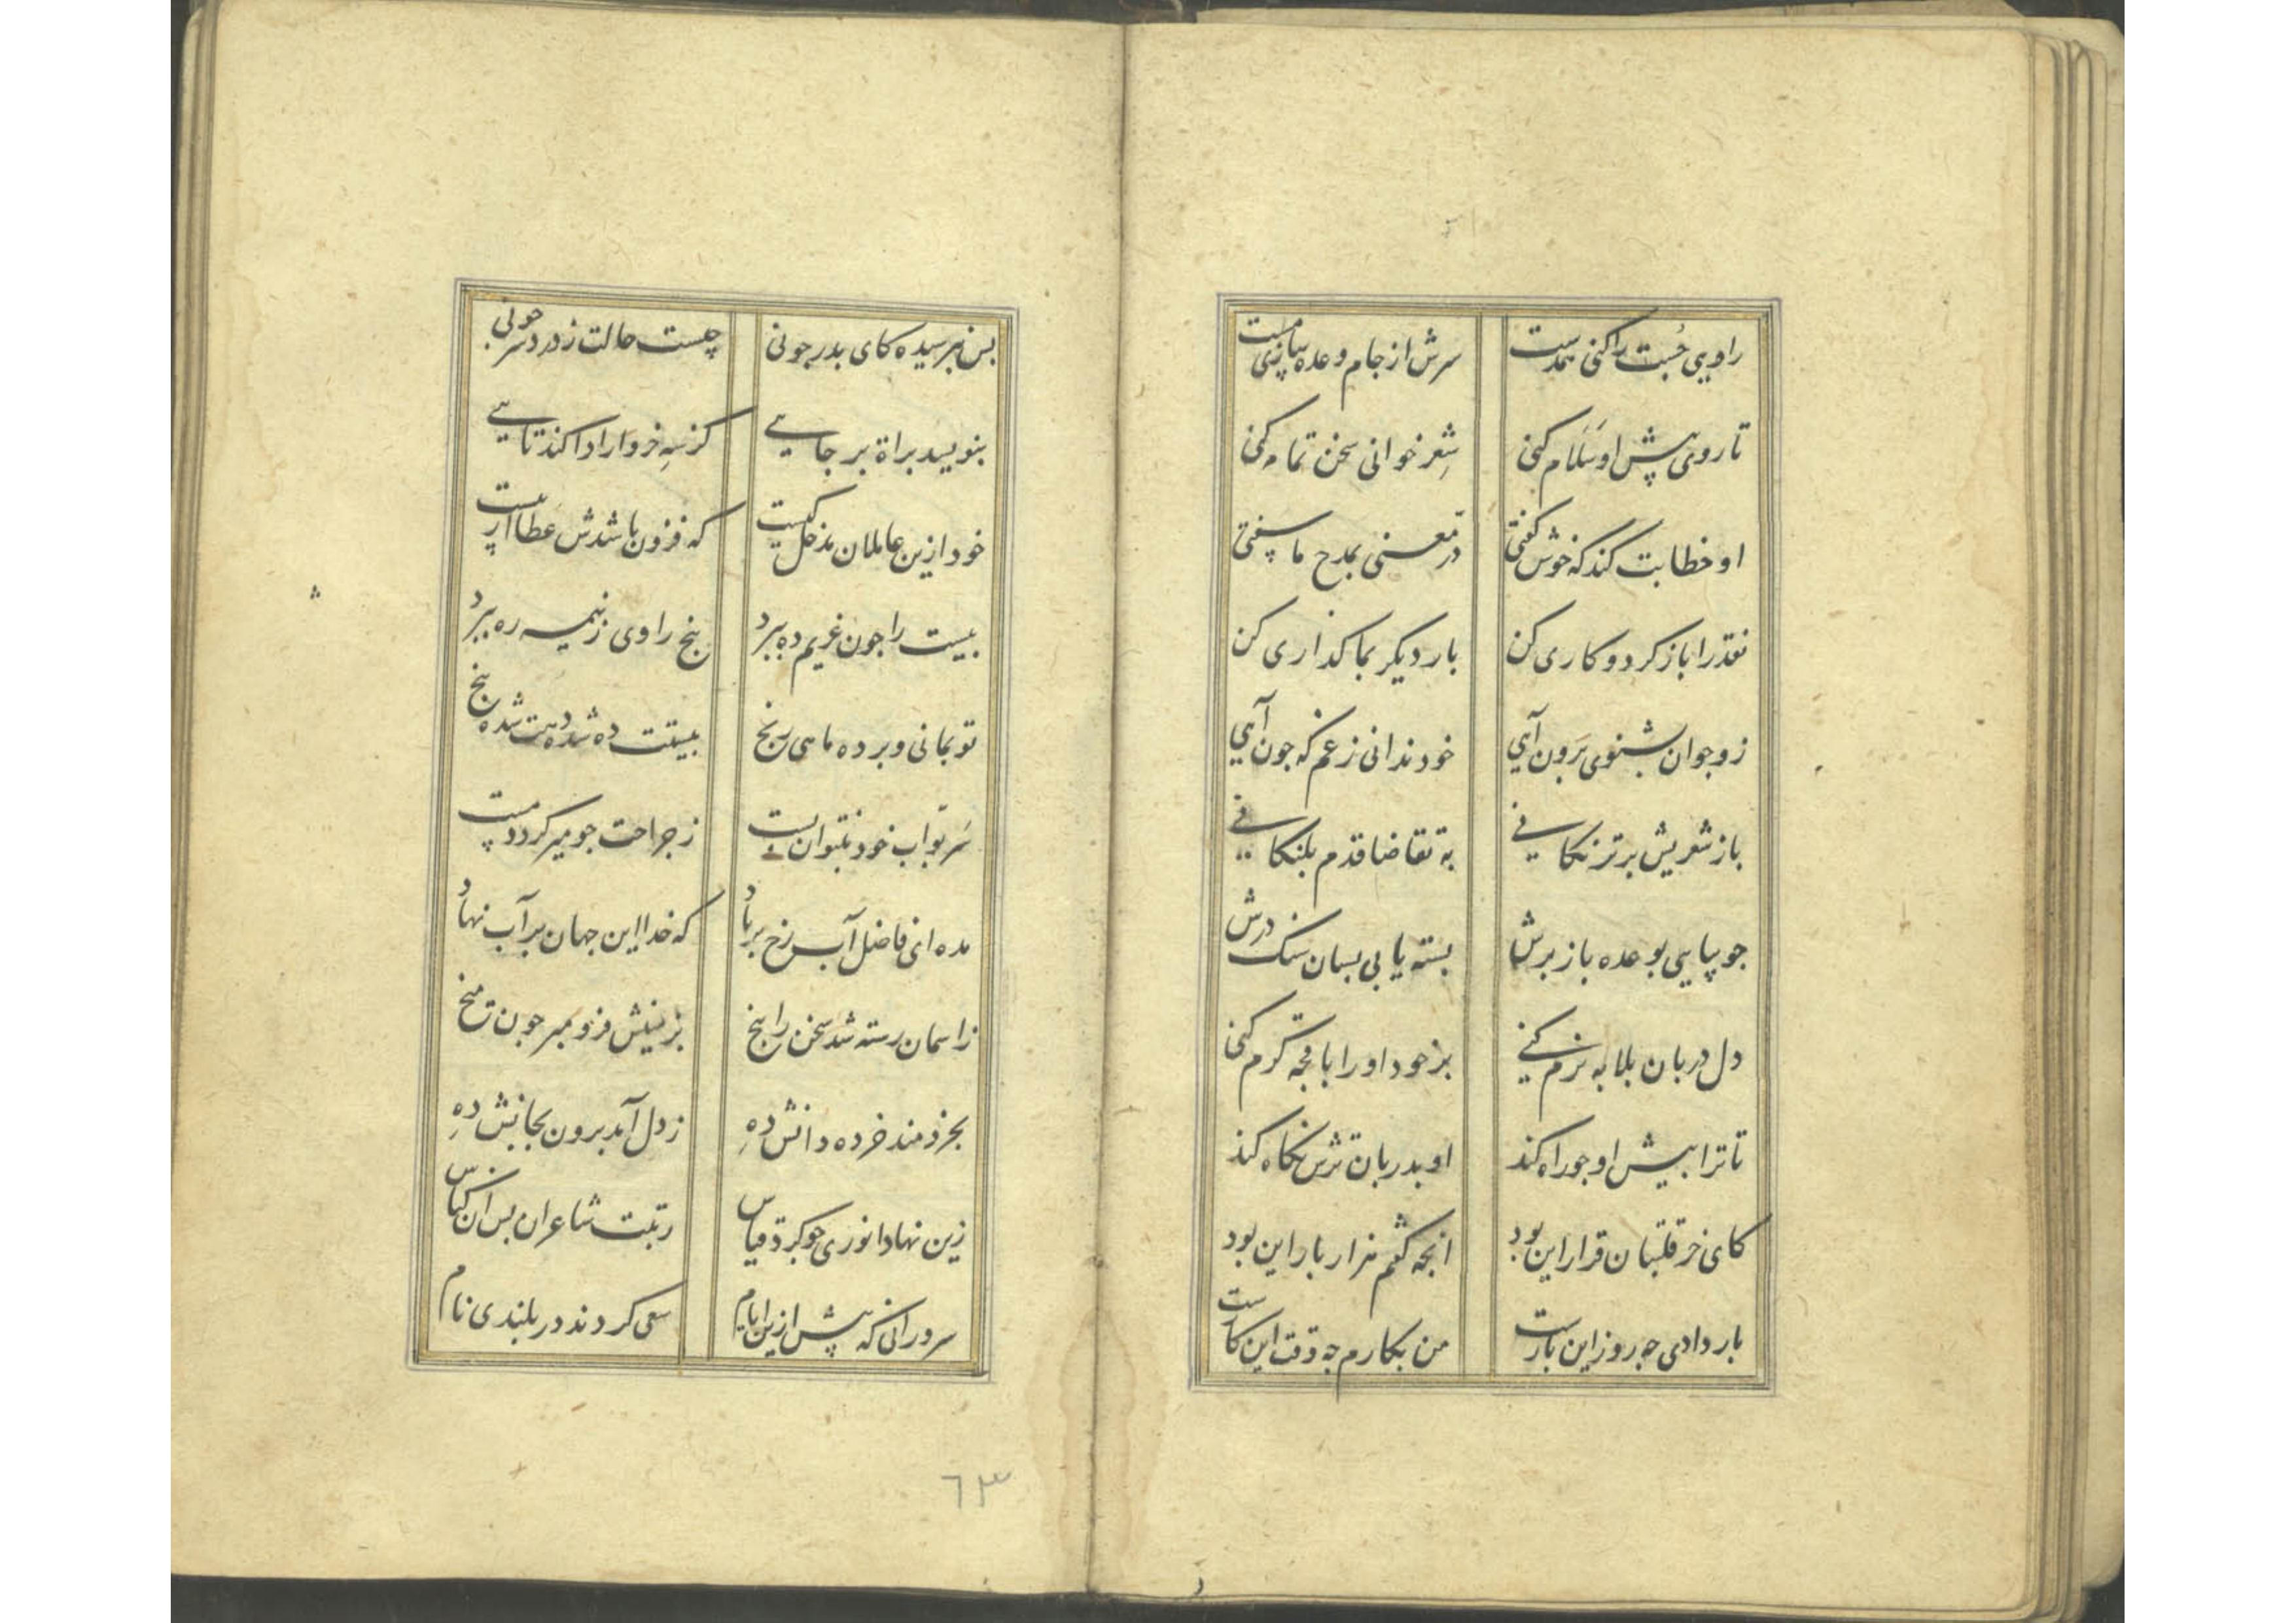 راویی چست را کنی همدست
سرش از جام وعده سازی مست
تا روی پیش او سلام کنی
شعر خوانی سخن تمام کنی
او خطابت کند که خوش گفتی
در معنی بمدح ما سفتی
نقد را باز کرد و کاری کن
بار دیکر بما کذاری کن
زو جوان بشنوی برون آیی
خود ندانی زغم که جون آیی
باز شعریش برتر نکافی
به تقاضا قدم بلنکافی
جو بیایی بوعده باز برش
بسته یابی بسان سنک درش
دل دربان بلابه نرم کنی
بز خود او را بافجه کرم کنی
تا ترا پیش او جو راه کند
او بدربان ترش نکاه کند
کای خر قلتبان قرار این بود
انجه کفتم هزار بار این بود
بار دادی جه روز این بارست
من بکارم جه وقت این کارست
بس بپرسیده کای پدر جونی
چیست حالت ز درد سر جونی
بنویسید براة بر جایی
کز سه خروار ادا کند تایی
خود ازین عاملان مدخل کیست
که فزون باشدش عطا از بیست
بیست را جون غریم ده ببرد
پنج راوی ز نیمه ره ببرد
تو بمانی و برده ماهی رنج
بیستت ده شده دهت شده پنج
سر تو آب خود نتوان بست
ز جراحت جو میر کردد پست
مده ای فاضل آب رخ بر باد
که خدا این جهان بر آب نهاد
ز اسمان رسته شد سخن را بیخ
بزمینش فرو مبر جون میخ
بخردمند خرده دانش ده
ز دل آمد برون بجانش ده
زین نهاد انوری جو کرد قیاس
رتبت شاعران بس از کناس
سرورانی که پیش ازین ایام
سعی کردند در بلندی نام
٦٣